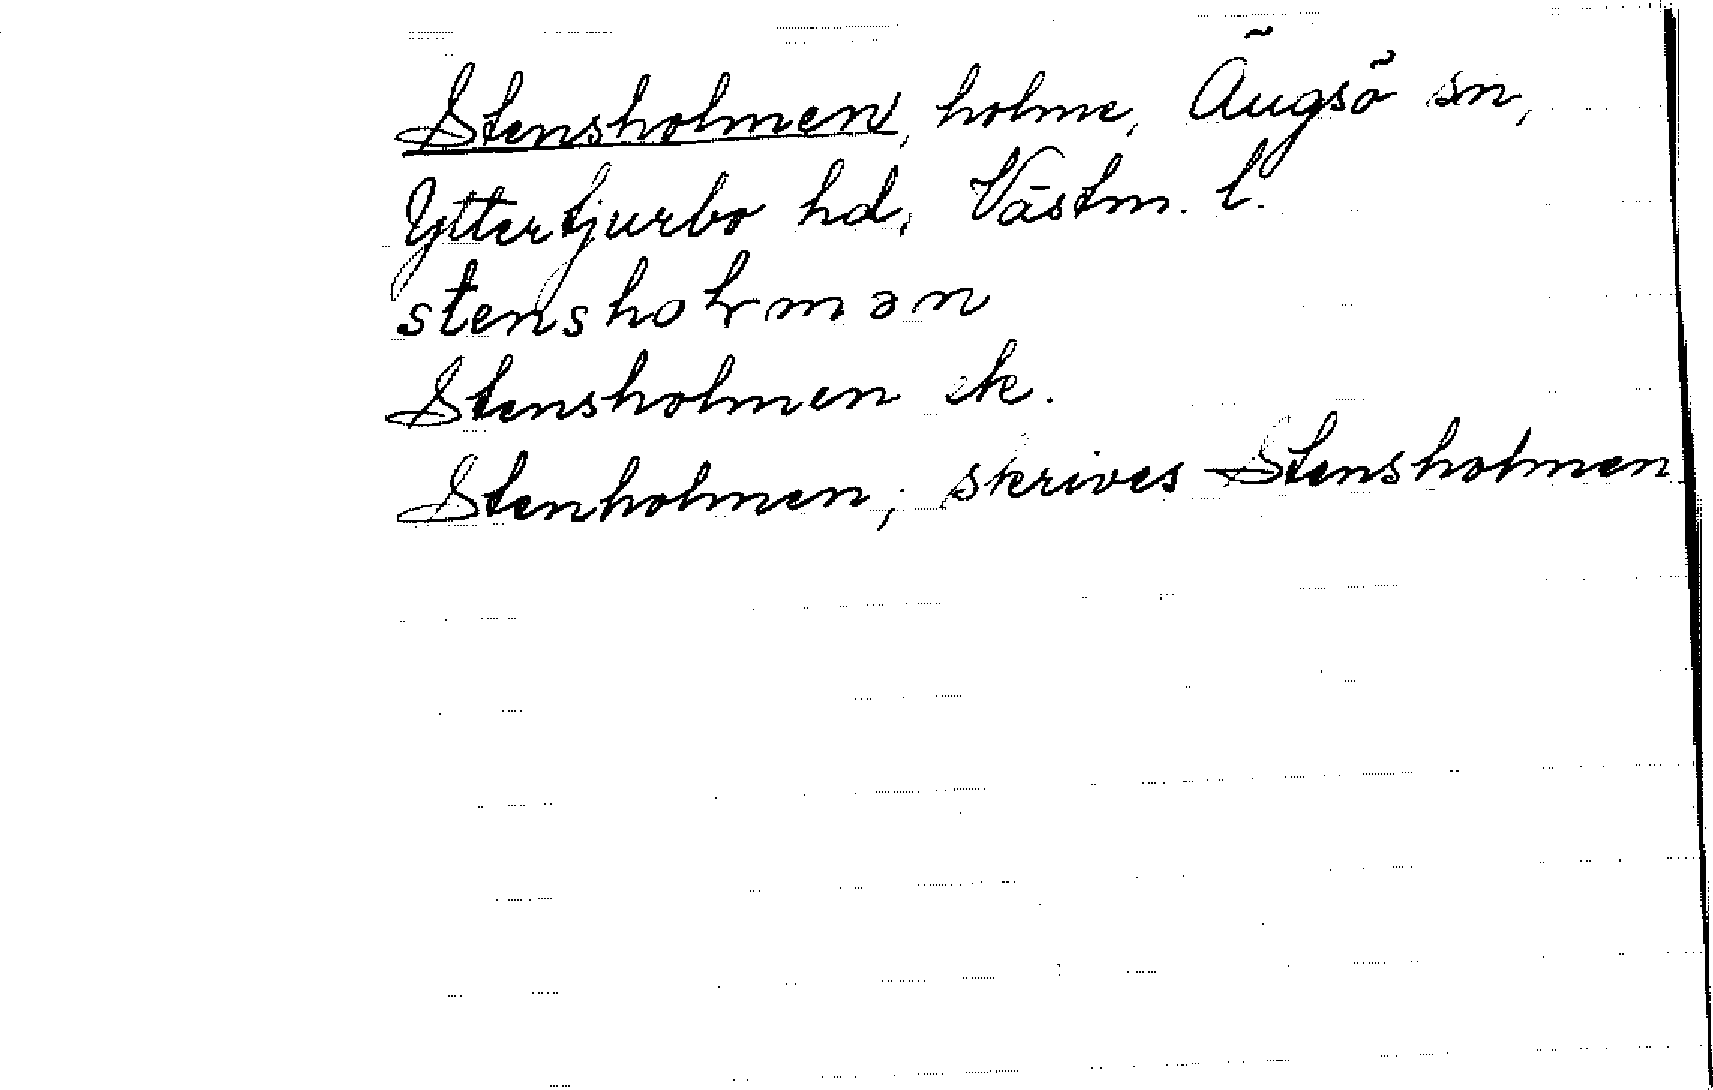 Stensholmen, holme, Ängsö sn,
Yttertjurbo hd, Västm. l.
stensholmən
Stensholmen ek.
Stenholmen, skrives Stensholmen